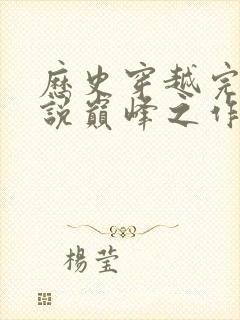 歷史穿越完
說巔峰之作
楊瑩